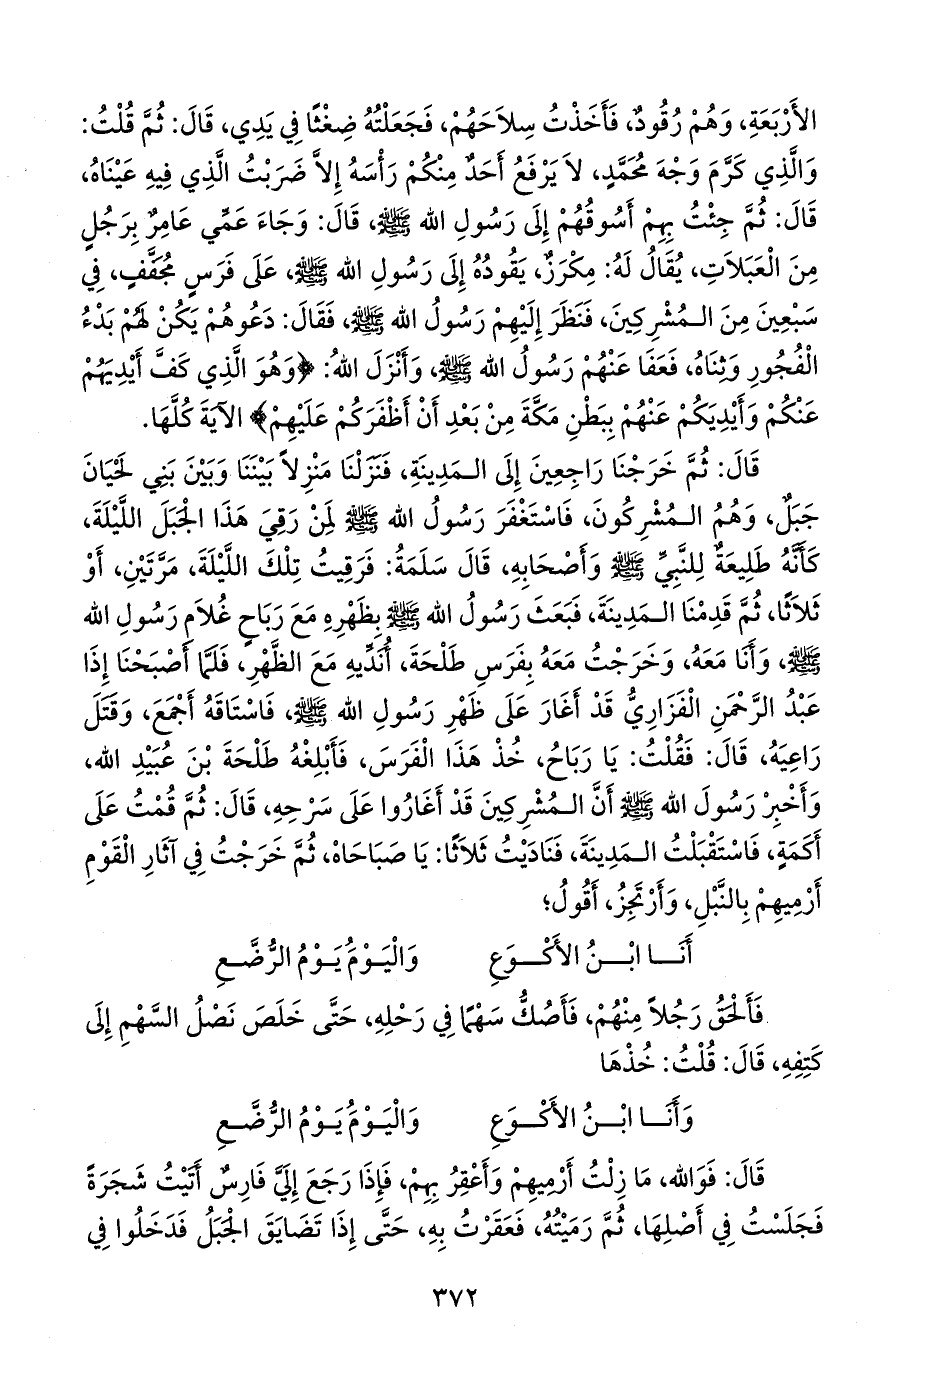 الأَرْبَعَةِ، وَهُمْ رُقُودٌ، فَأَخَذْتُ سِلاَحَهُمْ، فَجَعَلْتُهُ ضِغْثًا فِي يَدِي، قَالَ: ثُمَّ قُلْتُ:
وَالَّذِي كَرَّمَ وَجْهَ مُحَمَّدٍ، لاَ يَرْفَعُ أَحَدٌ مِنْكُمْ رَأْسَهُ إِلاَّ ضَرَبْتُ الَّذِي فِيهِ عَيْنَاهُ،
قَالَ: ثُمَّ جِئْتُ بِهِمْ أَسُوقُهُمْ إِلَى رَسُولِ الله ﷺ، قَالَ: وَجَاءَ عَمِّي عَامِرٌ بِرَجُلٍ
مِنَ الْعَبَلاَتِ، يُقَالُ لَهُ: مِكْرَزٌ، يَقُودُهُ إِلَى رَسُولِ الله ﷺ، عَلَى فَرَسٍ مُجَفَّفٍ، فِي
سَبْعِينَ مِنَ الـمُشْرِكِينَ، فَنَظَرَ إِلَيْهِمْ رَسُولُ الله ﷺ، فَقَالَ: دَعُوهُمْ يَكُنْ لَهُمْ بَدْءُ
الْفُجُورِ وَثِنَاهُ، فَعَفَا عَنْهُمْ رَسُولُ الله ﷺ، وَأَنْزَلَ اللهُ: ﴿وَهُوَ الَّذِي كَفَّ أَيْدِيَهُمْ
عَنْكُمْ وَأَيْدِيَكُمْ عَنْهُمْ بِبَطْنِ مَكَّةَ مِنْ بَعْدِ أَنْ أَظْفَرَكُمْ عَلَيْهِمْ﴾ الآيَةَ كُلَّهَا.
قَالَ: ثُمَّ خَرَجْنَا رَاجِعِينَ إِلَى الـمَدِينَةِ، فَنَزَلْنَا مَنْزِلاً بَيْنَنَا وَبَيْنَ بَنِي لَحْيَانَ
جَبَلٌ، وَهُمُ الـمُشْرِكُونَ، فَاسْتَغْفَرَ رَسُولُ الله ﷺ لِمَنْ رَقِيَ هَذَا الْجَبَلَ اللَّيْلَةَ،
كَأَنَّهُ طَلِيعَةٌ لِلنَّبِيِّ ﷺ وَأَصْحَابِهِ، قَالَ سَلَمَةُ: فَرَقِيتُ تِلْكَ اللَّيْلَةَ، مَرَّتَيْنِ، أَوْ
ثَلاَثًا، ثُمَّ قَدِمْنَا الـمَدِينَةَ، فَبَعَثَ رَسُولُ الله ﷺ بِظَهْرِهِ مَعَ رَبَاحٍ غُلاَمِ رَسُولِ الله
ﷺ، وَأَنَا مَعَهُ، وَخَرَجْتُ مَعَهُ بِفَرَسِ طَلْحَةَ، أُنَدِّيهِ مَعَ الظَّهْرِ، فَلَمَّا أَصْبَحْنَا إِذَا
عَبْدُ الرَّحْمَنِ الْفَزَارِيُّ قَدْ أَغَارَ عَلَى ظَهْرِ رَسُولِ الله ﷺ، فَاسْتَاقَهُ أَجْمَعَ، وَقَتَلَ
رَاعِيَهُ، قَالَ: فَقُلْتُ: يَا رَبَاحُ، خُذْ هَذَا الْفَرَسَ، فَأَبْلِغْهُ طَلْحَةَ بْنَ عُبَيْدِ الله،
وَأَخْبِرْ رَسُولَ الله ﷺ أَنَّ الـمُشْرِكِينَ قَدْ أَغَارُوا عَلَى سَرْحِهِ، قَالَ: ثُمَّ قُمْتُ عَلَى
أَكَمَةٍ، فَاسْتَقْبَلْتُ الـمَدِينَةَ، فَنَادَيْتُ ثَلاَثًا: يَا صَبَاحَاهْ، ثُمَّ خَرَجْتُ فِي آثَارِ الْقَوْمِ
أَرْمِيهِمْ بِالنَّبْلِ، وَأَرْتَجِزُ، أَقُولُ؛
أَنَــا ابْــنُ الأَكْــوَعِ وَالْيَـوْمُ يَـوْمُ الرُّضَّـعِ
فَأَلْحَقُ رَجُلاً مِنْهُمْ، فَأَصُكُّ سَهْمًا فِي رَحْلِهِ، حَتَّى خَلَصَ نَصْلُ السَّهْمِ إِلَى
كَتِفِهِ، قَالَ: قُلْتُ: خُذْهَا
وَأَنَــا ابْــنُ الأَكْــوَعِ وَالْيَـوْمُ يَـوْمُ الرُّضَّـعِ
قَالَ: فَوَالله، مَا زِلْتُ أَرْمِيهِمْ وَأَعْقِرُ بِهِمْ، فَإِذَا رَجَعَ إِلَيَّ فَارِسٌ أَتَيْتُ شَجَرَةً
فَجَلَسْتُ فِي أَصْلِهَا، ثُمَّ رَمَيْتُهُ، فَعَقَرْتُ بِهِ، حَتَّى إِذَا تَضَايَقَ الْجَبَلُ فَدَخَلُوا فِي
٣٧٢